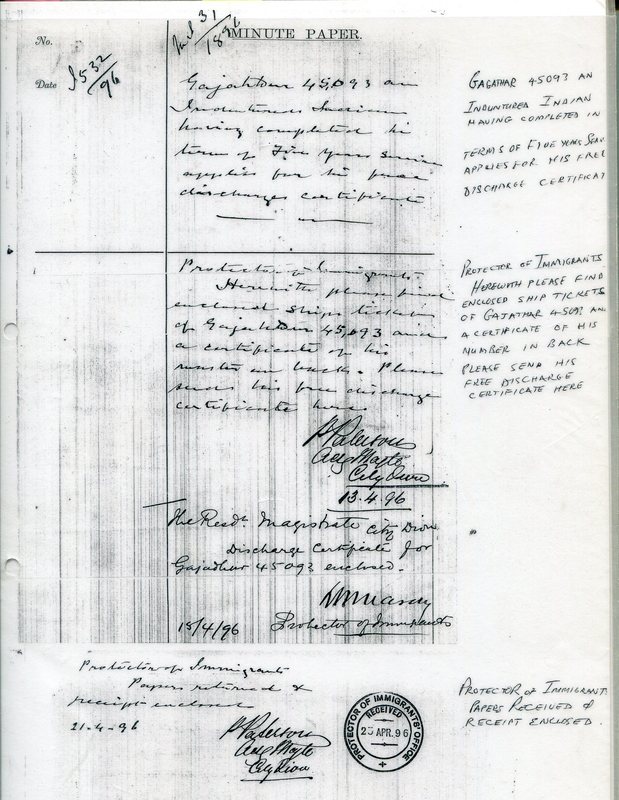 MINUTE PAPER.
No.
Date
I 532/96
31/1896
Gajahdur 45,093 an
Indentured Indian
having completed his
term of Five Years Service
applies for his free
discharge certificate
GAGATHAR 45093 AN
INDUNTURED INDIAN
HAVING COMPLETED IN
TERMS OF FIVE YEARS SERV.
APPLIES FOR HIS FREE
DISCHARGE CERTIFICAT
Protector of Immigrants
Herewith please find
enclosed ships ticket
of Gajahdur 45,093 and
a certificate of his
master on back. Please
send his free discharge
certificate here
P Paterson
Actg Magte
City Divn
13.4.96
PROTECTOR OF IMMIGRANTS
HEREWITH PLEASE FIND
ENCLOSED SHIP TICKETS
OF GAJATHAR 45093 AN
A CERTIFICATE OF HIS
NUMBER IN BACK
PLEASE SEND HIS
FREE DISCHARGE
CERTIFICATE HERE
The Resdt. Magistrate City Divn.
Discharge Certificate for
Gajadhur 45093 enclosed.
18/4/96
Protector of Immigrants
Protector of Immigrants
Papers returned &
receipt enclosed
21-4-96
P Paterson
Actg Magte
City Divn
PROTECTOR OF IMMIGRANTS' OFFICE
RECEIVED
25 APR. 96
PROTECTOR OF IMMIGRANT
PAPERS RECEIVED &
RECEIPT ENCLOSED.